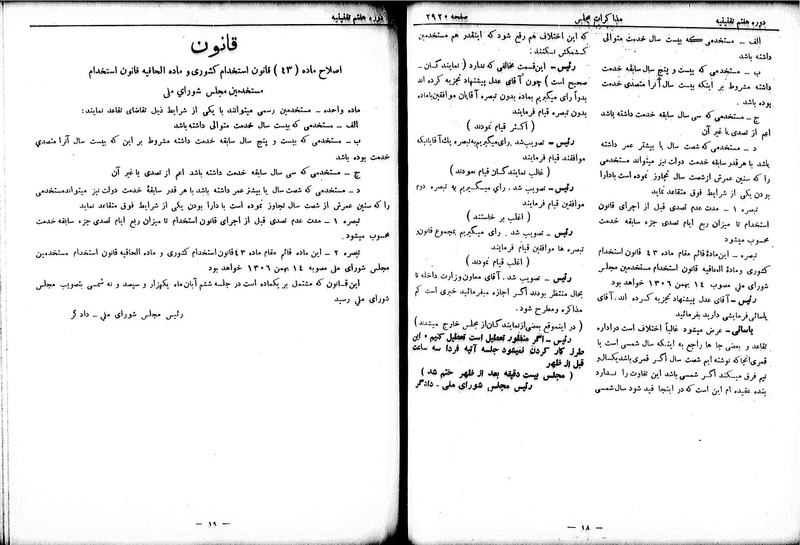 دوره هفتم تقنینیه
مذاکرات مجلس
صفحه ۲۹۲۰
الف ـ مستخدمی که بیست سال خدمت متوالی
داشته باشد
ب ـ مستخدمی که بیست و پنج سال سابقه خدمت
داشته مشروط بر اینکه بیست سال آنرا متصدی خدمت
بوده باشد .
ج ـ مستخدمی که سی سال سابقه خدمت داشته باشد
اعم از تصدی یا غیر آن
د ـ مستخدمی که شصت سال یا بیشتر عمر داشته
باشد با هر قدر سابقه خدمت دولت نیز میتواند مستخدمی
را که سنین عمرش از شصت سال تجاوز نموده است با دارا
بودن یکی از شرایط فوق متقاعد نماید
تبصره ۱ ـ مدت عدم تصدی قبل از اجرای قانون
استخدام تا میزان ربع ایام تصدی جزء سابقه خدمت
محسوب میشود
تبصره ـ این ماده قائم مقام ماده ۴۳ قانون استخدام
کشوری و مادهٔ الحاقیه قانون استخدام مستخدمین مجلس
شورای ملی مصوب ۱۴ بهمن ۱۳۰۶ خواهد بود
رئیس ـ آقای عدل پیشنهاد تجزیه کرده اند. آقای
یاسائی فرمایشی دارید بفرمائید
یاسائی ـ عرض میشود غالباً اختلاف است در اداره
تقاعد و بعضی جا ها راجع به اینکه سال شمسی است یا
قمری اینجا که نوشته ایم شصت سال اگر قمری باشد یکسال و
نیم فرق میکند اگر شمسی باشد این تفاوت را ندارد
بنده عقیده ام این است که در اینجا قید شود سال شمسی
که این اختلاف هم رفع شود که اینقدر هم مستخدمین
کشمکش نکنند :
رئیس ـ این قسمت مخالفی که ندارد ( نمایندگان ـ
صحیح است ) چون آقای عدل پیشنهاد تجزیه کرده اند
بدواً رأی میگیریم بماده بدون تبصره آقایان موافقین با ماده
بدون تبصره قیام فرمایند
( اکثر قیام نمودند )
رئیس ـ تصویب شد . رای میگیریم به تبصره یک آقایانیکه
موافقند قیام فرمایند
( غالب نمایندگان قیام نمودند )
رئیس ـ تصویب شد . رای میگیریم به تبصره دوم
موافقین قیام فرمایند
( اغلب بر خاستند )
رئیس ـ تصویب شد . رای میگیریم بمجموع قانون و
تبصره ها موافقین قیام فرمایند
( اغلب قیام نمودند )
رئیس ـ تصویب شد. آقای معاون وزارت داخله تا
بحال منتظر بودند اگر اجازه میفرمائید خبری است کم
مذاکره و مطرح شود .
( در اینموقع بعضی از نمایندگان از مجلس خارج میشدند )
رئیس ـ اگر منظور تعطیل است تعطیل کنیم . این
طرز کار کردن نمیشود جلسه آتیه فردا سه ساعت
قبل از ظهر
( مجلس بیست دقیقه بعد از ظهر ختم شد )
رئیس مجلس شورای ملی ـ دادگر
ـ ۱۸ ـ
دوره هفتم تقنینیه
قانون
اصلاح ماده ( ۴۳ ) قانون استخدام کشوری و ماده الحاقیه قانون استخدام
مستخدمین مجلس شورای ملی
ماده واحده ـ مستخدمین رسمی میتوانند با یکی از شرایط ذیل تقاضای تقاعد نمایند:
الف ـ مستخدمی که بیست سال خدمت متوالی داشته باشد
ب ـ مستخدمی که بیست و پنج سال سابقه خدمت داشته مشروط بر این که بیست سال آنرا متصدی
خدمت بوده باشد
ج ـ مستخدمی که سی سال سابقه خدمت داشته باشد اعم از تصدی یا غیر آن
د ـ مستخدمی که شصت سال یا بیشتر عمر داشته باشد با هر قدر سابقهٔ خدمت دولت نیز میتواند مستخدمی
را که سنین عمرش از شصت سال تجاوز نموده است با دارا بودن یکی از شرایط فوق متقاعد نماید
تبصره ۱ ـ مدت عدم تصدی قبل از اجرای قانون استخدام تا میزان ربع ایام تصدی جزء سابقه خدمت
محسوب میشود .
تبصره ۲ ـ این ماده قائم مقام ماده ۴۳ قانون استخدام کشوری و ماده الحاقیه قانون استخدام مستخدمین
مجلس شورای ملی مصوبه ۱۴ بهمن ۱۳۰۶ خواهد بود
این قانون که مشتمل بر یکماده است در جلسه ششم آبان ماه یکهزار و سیصد و نه شمسی بتصویب مجلس
شورای ملی رسید
رئیس مجلس شورای ملی ـ دادگر
ـ ۱۹ ـ